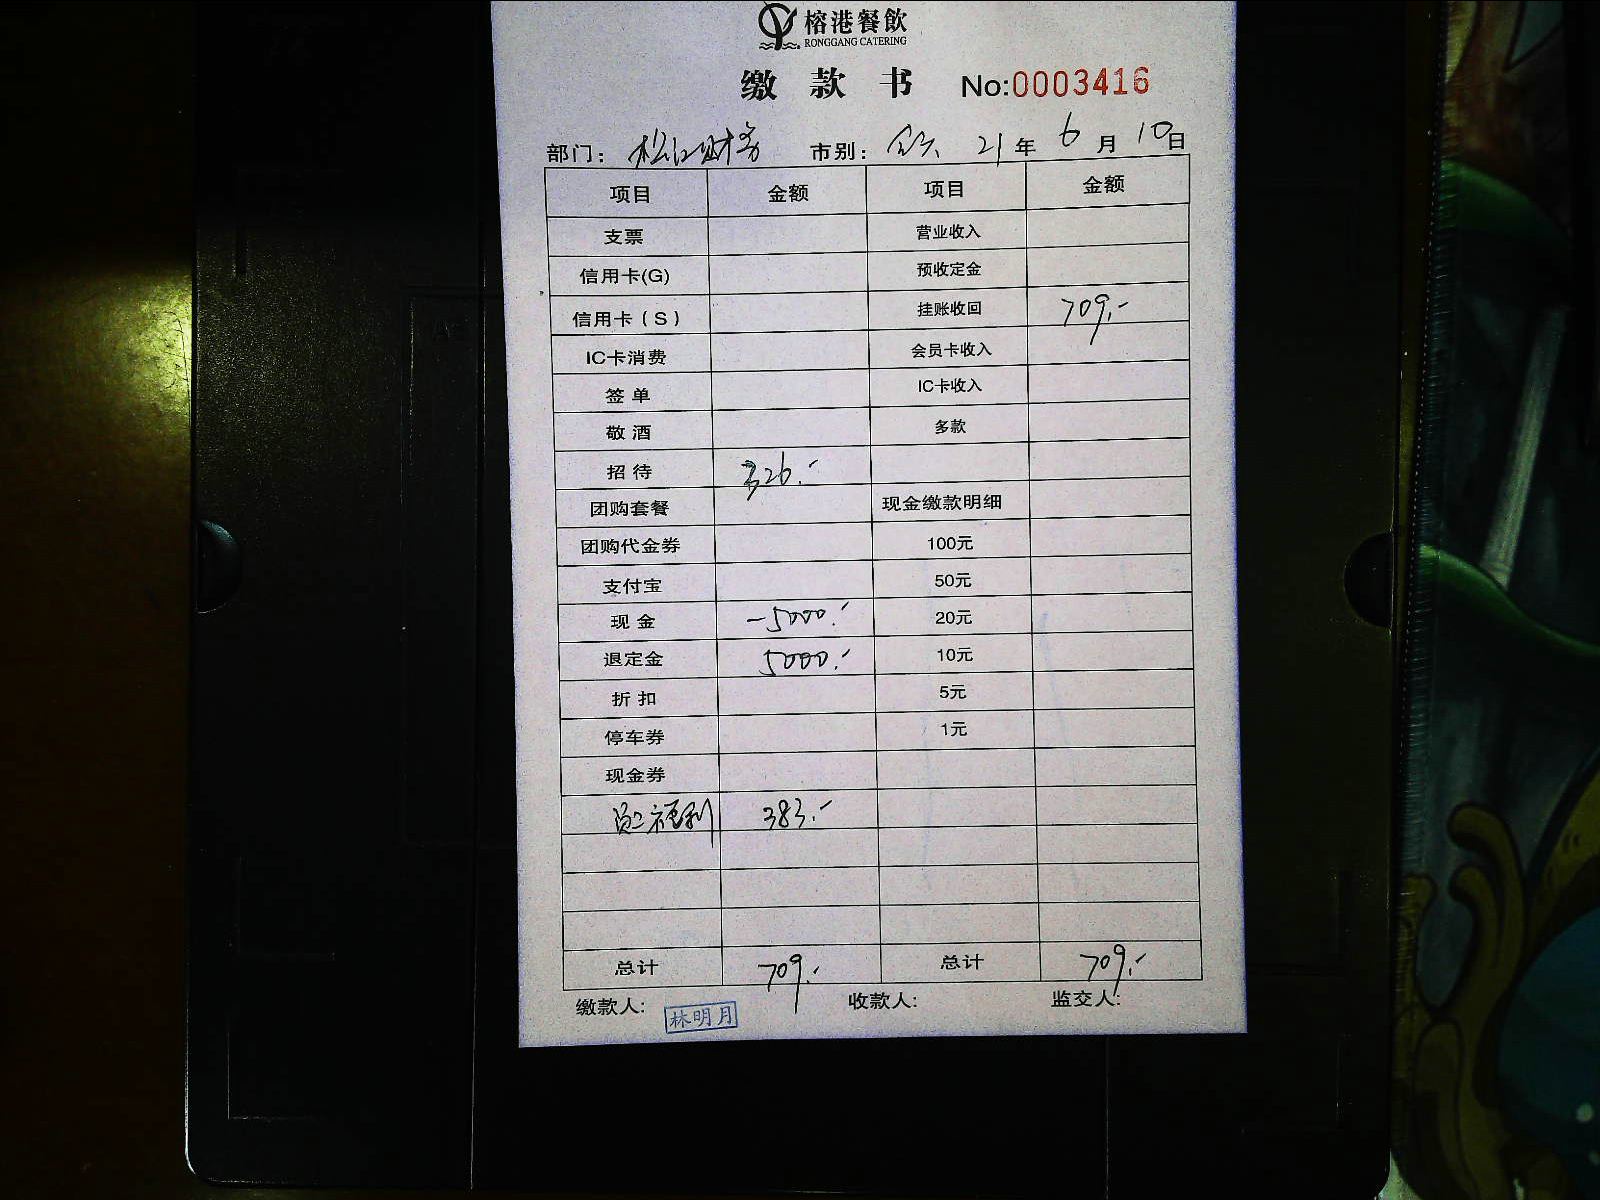 榕港餐飲
RONGGANG CATERING
缴款书 No:0003416
部门: 松江财务 市别: 21年 6月 10日
项目 金额 项目 金额
支票 营业收入
信用卡(G) 预收定金
信用卡(S) 挂账收回 709.-
IC卡消费 会员卡收入
签单 IC卡收入
敬酒 多款
招待 326.-
团购套餐 现金缴款明细
团购代金券 100元
支付宝 50元
现金 -5000.- 20元
退定金 5000.- 10元
折扣 5元
停车券 1元
现金券
员工福利 383.-
总计 709.- 总计 709.-
缴款人: 林明月 收款人: 监交人: